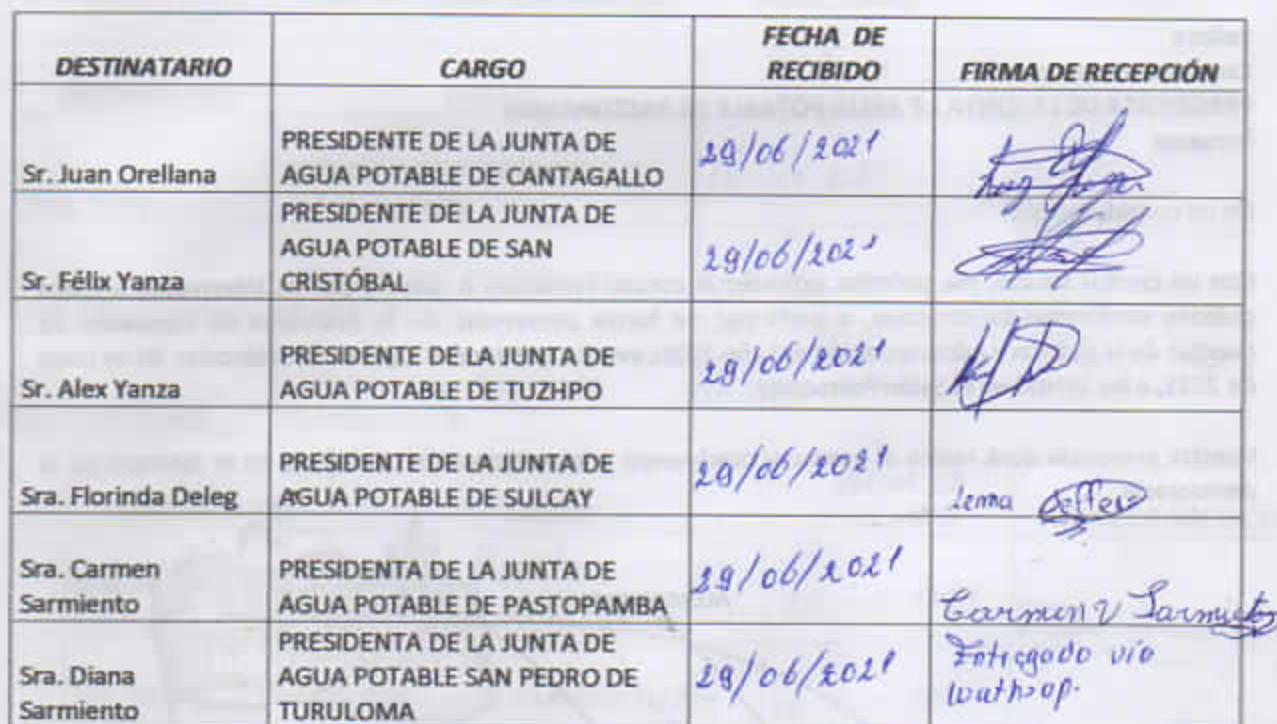 DESTINATARIO
CARGO
FECHA DE
RECIBIDO
FIRMA DE RECEPCIÓN
Sr. Juan Orellana
PRESIDENTE DE LA JUNTA DE
AGUA POTABLE DE CANTAGALLO
29/06/2021
Sr. Félix Yanza
PRESIDENTE DE LA JUNTA DE
AGUA POTABLE DE SAN
CRISTÓBAL
29/06/2021
Sr. Alex Yanza
PRESIDENTE DE LA JUNTA DE
AGUA POTABLE DE TUZHPO
29/06/2021
Sra. Florinda Deleg
PRESIDENTE DE LA JUNTA DE
AGUA POTABLE DE SULCAY
29/06/2021
Sra. Carmen
Sarmiento
PRESIDENTA DE LA JUNTA DE
AGUA POTABLE DE PASTOPAMBA
29/06/2021
Carmen Sarmiento
Sra. Diana
Sarmiento
PRESIDENTA DE LA JUNTA DE
AGUA POTABLE SAN PEDRO DE
TURULOMA
29/06/2021
Entregado vía